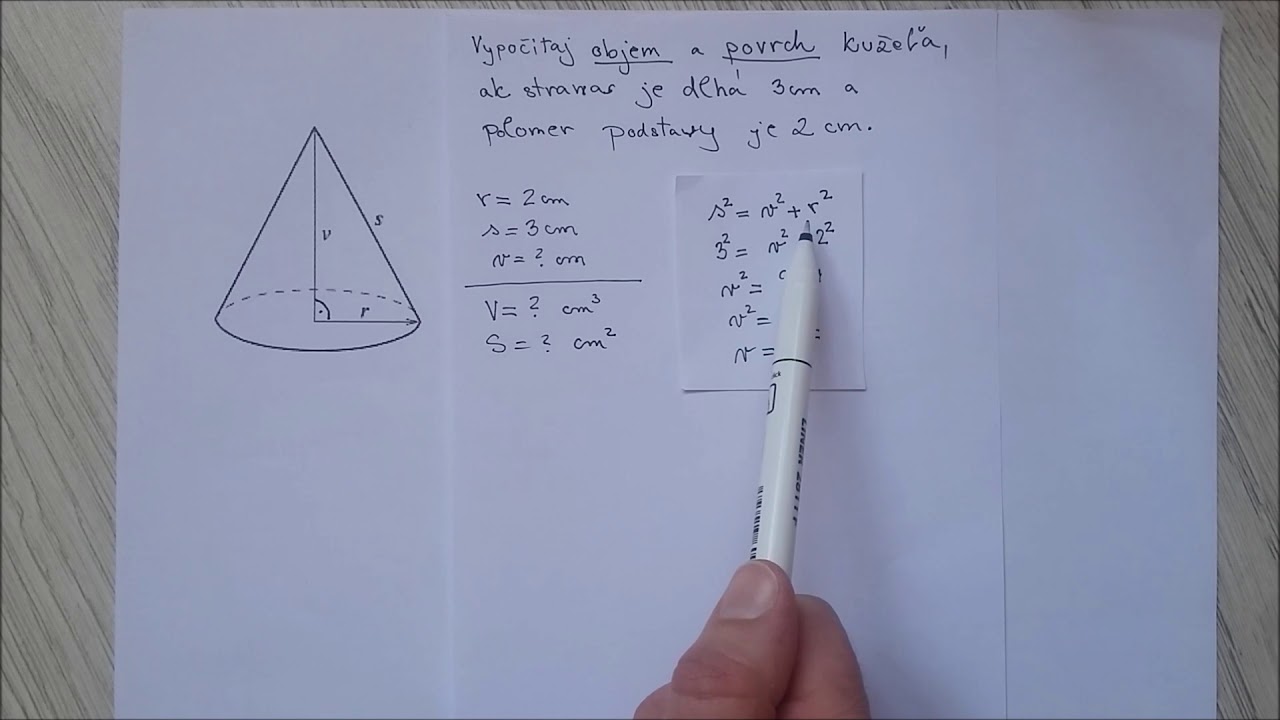 Vypočítaj objem a povrch kužeľa,
ak strana s je dlhá 3cm a
polomer podstavy je 2 cm.
v
s
r
r = 2 cm
s = 3 cm
v = ? cm
V = ? cm³
S = ? cm²
s² = v² + r²
3² = v² 2²
v² =
v² =
v =
LINER